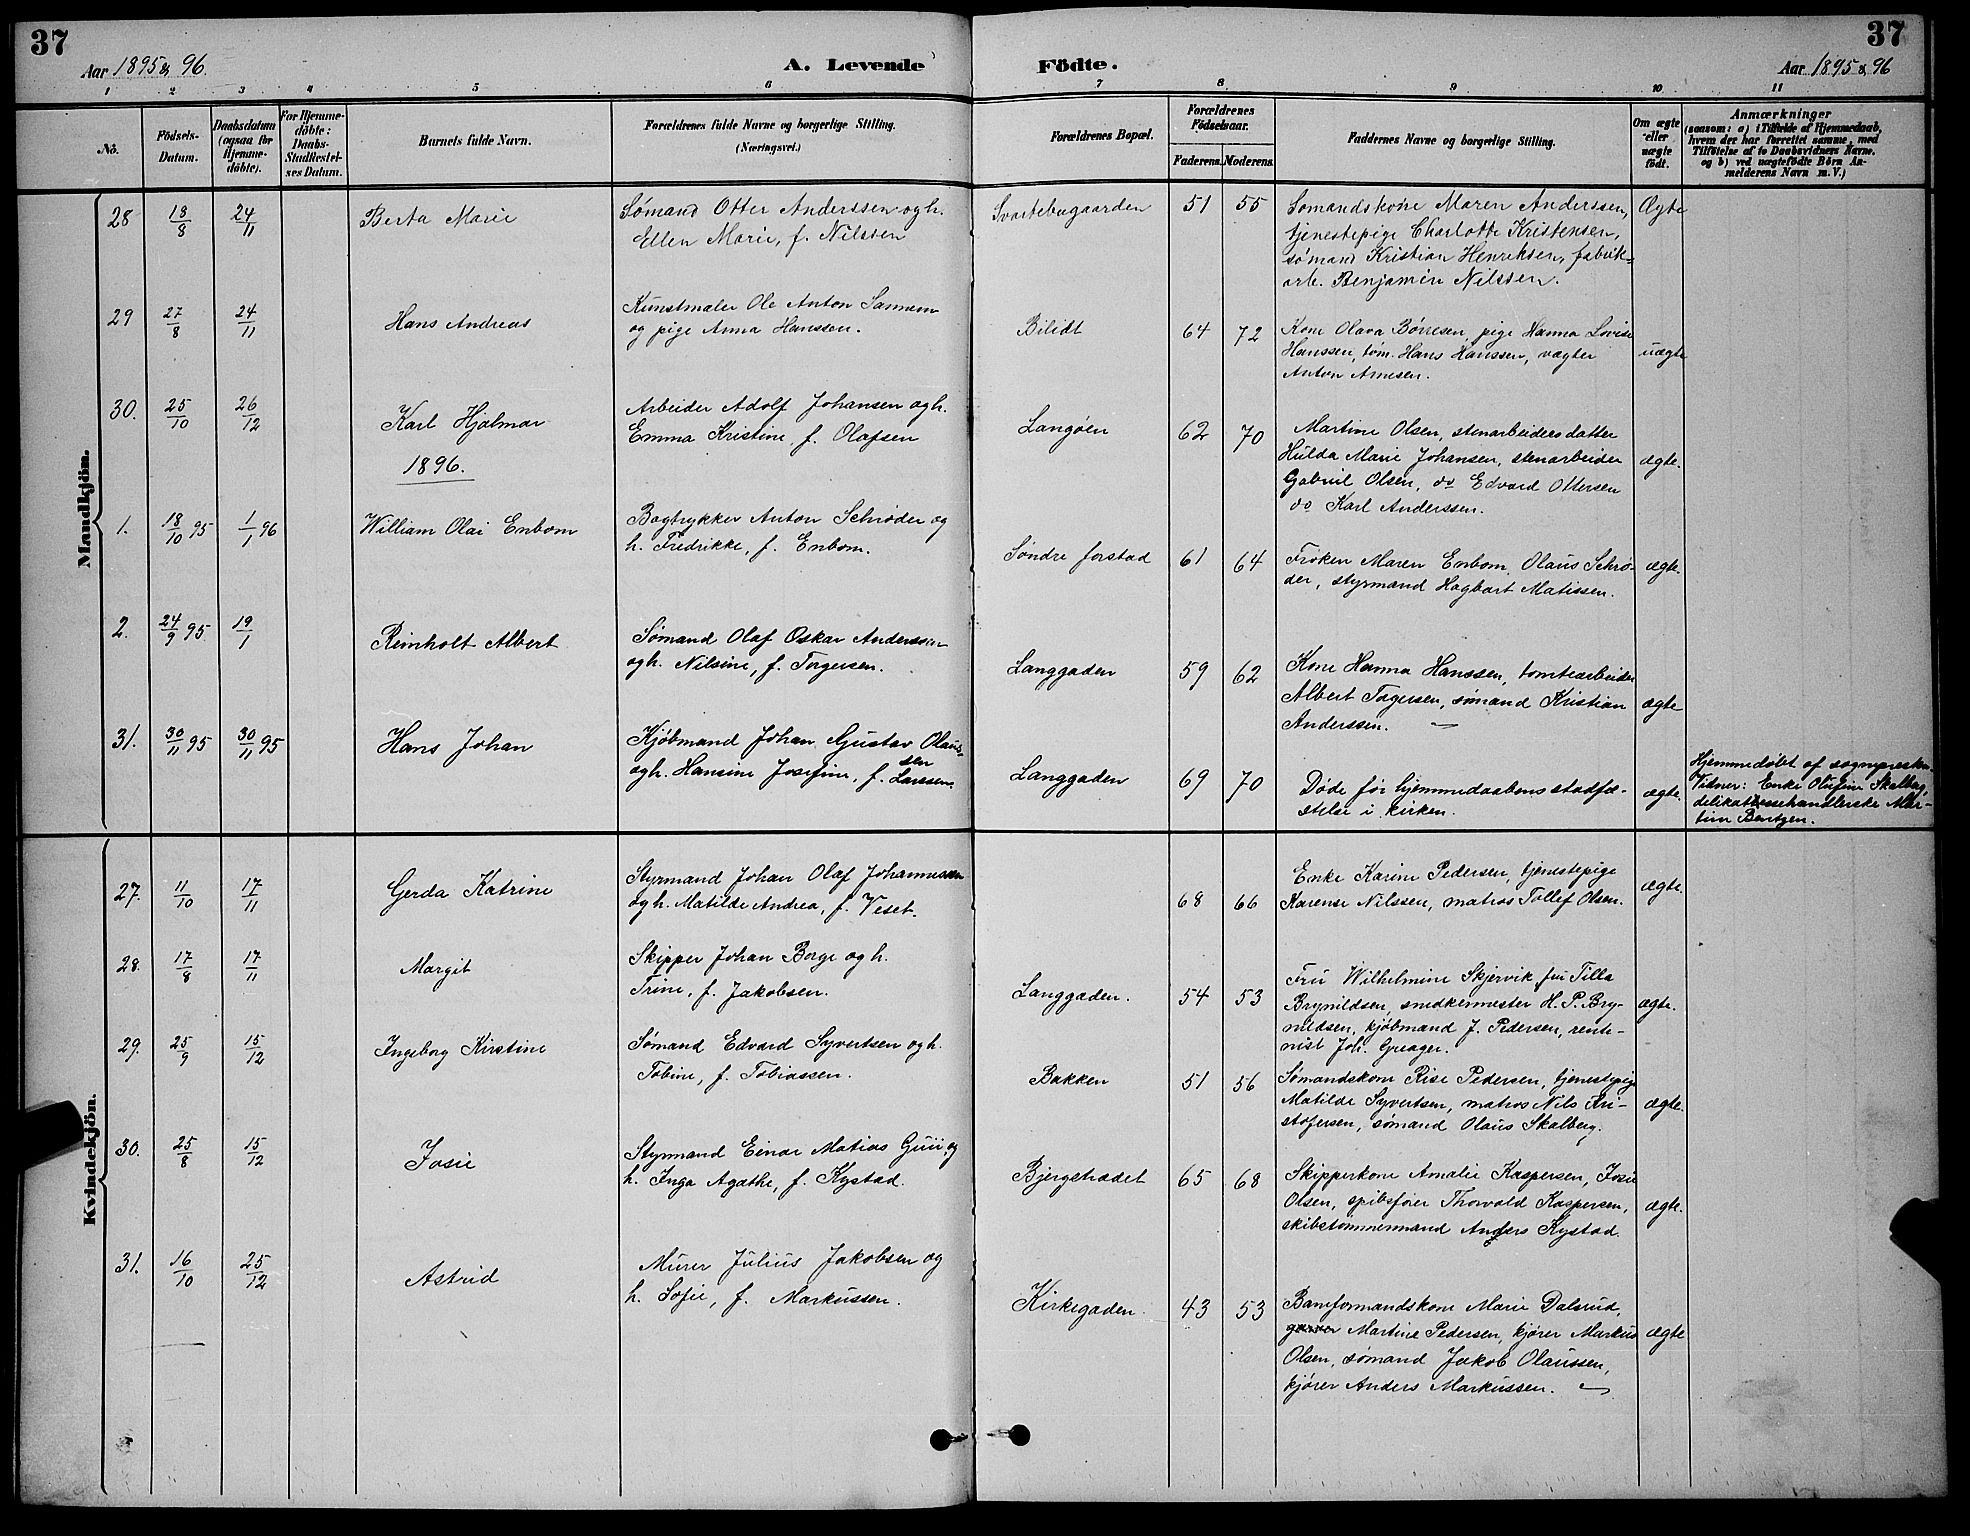 37
37
Aar 1895 & 96.
A. Levende
Födte.
Aar 1895 & 96
1 2 3 4 5 6 7 8 9 10 11
No.
Födsels-
Datum.
Daabsdatum
(ogsaa for
Hjemme-
döbte).
For Hjemme-
döbte:
Daabs-
Stadfæstel-
ses Datum.
Barnets fulde Navn.
Forældrenes fulde Navne og borgerlige Stilling.
(Næringsvei.)
Forældrenes Bopæl.
Forældrenes
Födselsaar.
Faderens. Moderens.
Faddernes Navne og borgerlige Stilling.
Om ægte
eller
uægte
født.
Anmærkninger
(saasom: a) i Tilfælde af Hjemmedaab,
hvem der har forrettet samme, med
Tilföielse af to Daabsvidners Navne,
og b) ved uægtefödte Börn An-
melderens Navn m. V.)
Mandkjön.
28 18/8 24/11 Berta Marie
Sømand Otter Anderssen og h.
Ellen Marie, f. Nilssen
Svartebugaarden 51 55
Sømandskone Maren Anderssen,
tjenestepige Charlotte Kristensen,
sømand Kristian Henriksen, fabrik=
arb. Benjamin Nilssen.
Ægte
29 27/8 24/11 Hans Andreas
Kunstmaler Ole Anton
og pige Anna Hanssen.
Bilidt 64 72
Kone Olava Børresen, pige Hanna Lovise
Hanssen, tøm. Hans Hanssen, vægter
Anton Arnesen.
uægte
30. 25/10 26/12 Karl Hjalmar
Arbeider Adolf Johansen og h.
Emma Kristine, f. Olafsen
Langøen 62 70
Martine Olsen, stenarbeiders datter
Hulda Marie Johansen, stenarbeider
Gabriel Olsen, do Edvard Ottersen
do Karl Anderssen.
ægte.
1896.
1. 18/10 95 1/1 96 William Olai Enbom
Bogtrykker Anton Schrøder og
h. Fredrikke, f. Enbom.
Søndre forstad 61 64
Frøken Maren Enbom, Olaus Schrø-
der, styrmand Hagbart Matissen.
ægte.
2. 24/9 95 19/1 Reinholt Albert
Sømand Olaf Oskar Anderssen
og h. Nilsine, f. Torgersen.
Langgaden 59 62
Kone Hanna Hanssen, tomtearbeider
Albert Torgersen, sømand Kristian
Anderssen. —
ægte
31. 30/11 95 30/11 95 Hans Johan
Kjøbmand Johan Gustav Olaus-
sen
og h. Hansine Josefine, f. Larssen.
Langgaden 69 70
Døde før hjemmedaabens stadfæ-
stelse i kirken.
ægte.
Hjemmedøbt af sognepresten.
Vidner: Enke Olufine Skalberg,
delikatessehandlerske Mar-
tine Bentzen.
Kvindekjön.
27. 11/10 17/11 Gerda Katrine
Styrmand Johan Olaf Johannessen
og h. Matilde Andrea, f. Veset.
68 66
Enke Karine Pedersen, tjenestepige
Karense Nilssen, matros Tollef Olsen.
ægte.
28. 17/8 17/11 Margit
Skipper Johan Borge og h.
Trine, f. Jakobsen.
Langgaden. 54 53
Fru Wilhelmine Skjervik, fru Tilla
Brynildsen, snedkermester H. P. Bry-
nildsen, kjøbmand J. Pedersen, rente-
nist Joh. Greager.
ægte.
29. 25/9 15/12 Ingeborg Kirstine
Sømand Edvard Syvertsen og h.
Tobine, f. Tobiassen.
Bakken 51 56
Sømandskone Rise Pedersen, tjenestepige
Matilde Syvertsen, matros Nils Kri-
stofersen, sømand Olaus Skalberg.
ægte.
30. 25/8 15/12 Josie
Styrmand Einar Matias og
h. Inga Agathe, f. Kystad.
Bjergstrædet 65 68
Skipperkone Amalie Kaspersen, Josie
Olsen, Thorvald Kaspersen,
skibstømmermand Anders Kystad.
ægte.
31. 16/10 25/12 Astrid
Murer Julius Jakobsen og
h. Sofie, f. Markussen.
Kirkegaden. 43 53
Baneformandskone Marie Dalsrud,
Martine Pedersen, kjører Markus
Olsen, sømand Jakob Olaussen,
kjører Anders Markussen.
ægte